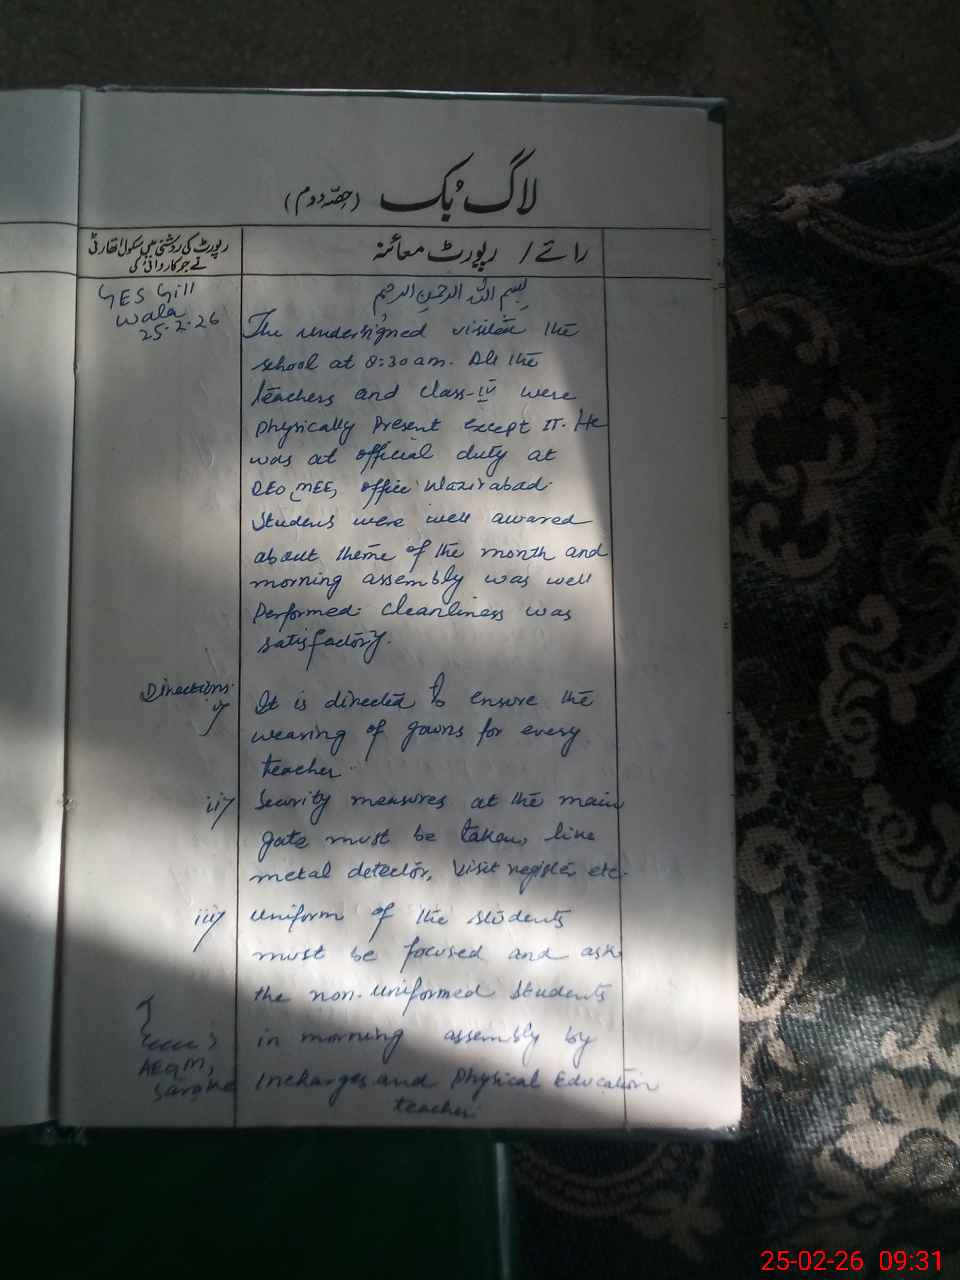 لاگ بُک (حصّہ دوم)
رپورٹ کی روشنی میں سکول اتھارٹی نے جو کاروائی کی
رائے / رپورٹ معائنہ
GES Gill
Wala
25-2-26
بسم اللہ الرحمٰن الرحیم
The undersigned visited the
school at 8:30am. All the
teachers and class-IV were
physically Present except IT. He
was at official duty at
DEO MEE, office Wazirabad.
Students were well awared
about theme of the month and
morning assembly was well
Performed. Cleanliness was
satisfactory.
Directions.
i) It is directed to ensure the
wearing of gowns for every
teacher.
ii) Security measures at the main
gate must be taken, like
metal detector, visit register etc.
iii) Uniform of the students
must be focused and ask
the non-uniformed students
in morning assembly by
Incharges and Physical Education
teacher
AEO M,
25-02-26 09:31